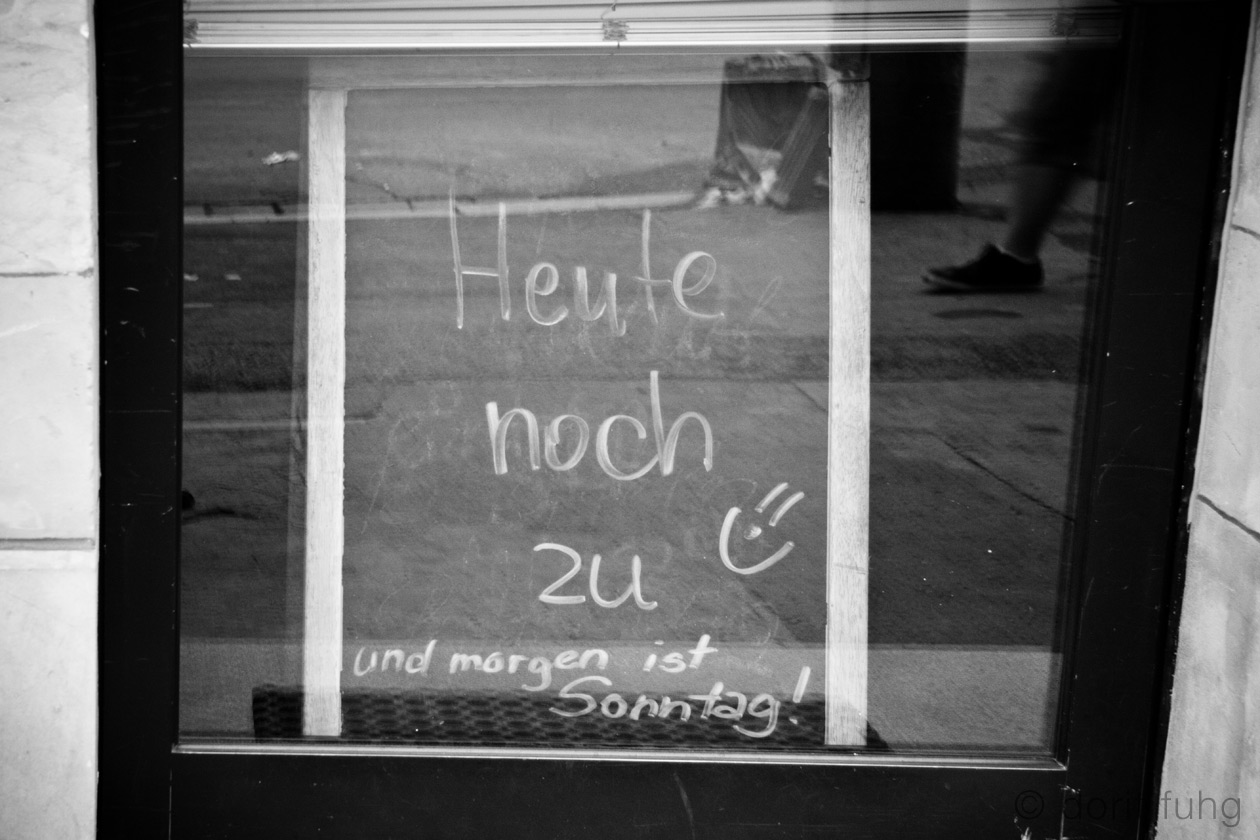 Heute
noch
zu
und morgen ist
Sonntag!
© dorin fuhg